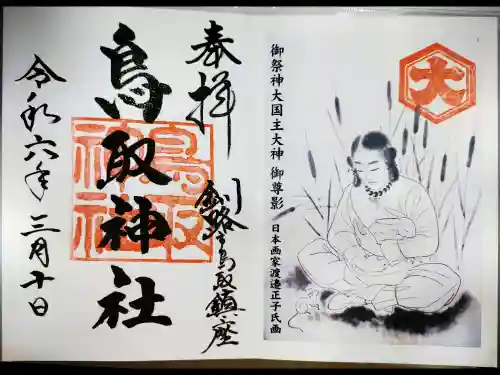 大
御祭神大国主大神 御尊影
日本画家渡邉正子氏画
奉拝
釧路之鳥取鎮座
鳥取神社
鳥取神社
令和六年三月十日